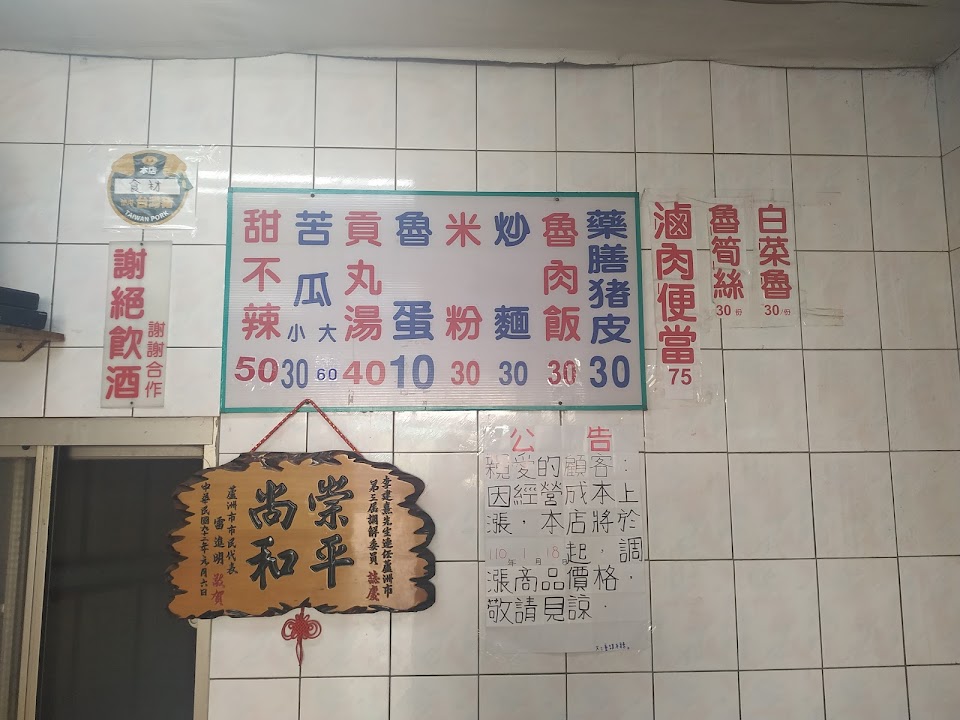 白菜魯
30/份
魯筍絲
30份
滷肉便當
75
藥膳猪皮
30
魯肉飯
30
炒麵
30
米粉
30
魯蛋
10
貢丸湯
40
苦瓜
小 大
30 60
甜不辣
50
食材
TAIWAN PORK
謝絕飲酒
謝謝合作
公告
親愛的顧客:
因經營成本上
漲,本店將於
110年1月18日起,調
漲商品價格,
敬請見諒.
李建熹先生連任蘆洲市
第三屆調解委員 誌慶
崇尚
平和
蘆洲市市民代表
雷進明 敬賀
中華民國九十二年元月六日